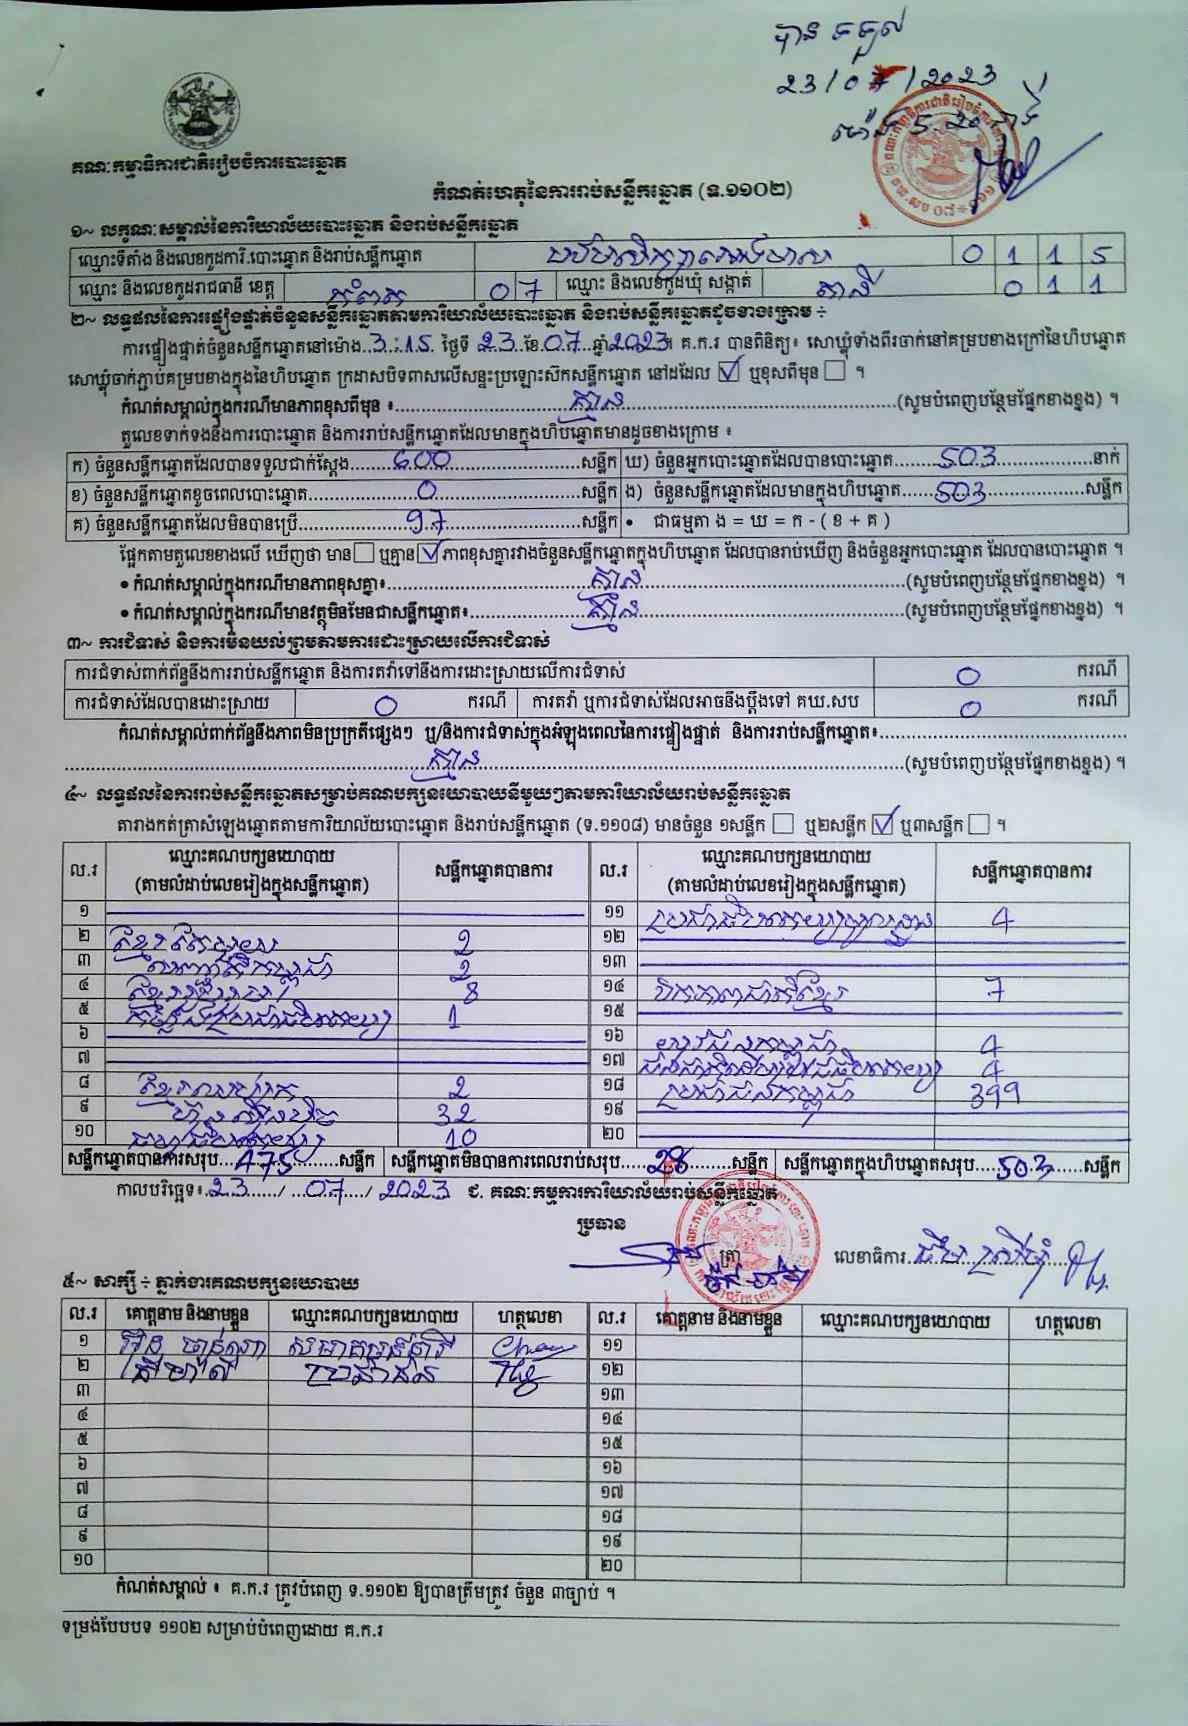 បាន ទទួល
23/07/2023
គណៈកម្មាធិការជាតិរៀបចំការបោះឆ្នោត
កំណត់ហេតុនៃការរាប់សន្លឹកឆ្នោត (ទ.១១០២)
១~ លក្ខណៈសម្គាល់នៃការិយាល័យបោះឆ្នោត និងរាប់សន្លឹកឆ្នោត
ឈ្មោះទីតាំង និងលេខកូដការិ.បោះឆ្នោត និងរាប់សន្លឹកឆ្នោត 0 1 1 5
ឈ្មោះ និងលេខកូដរាជធានី ខេត្ត កំពត 0 7 ឈ្មោះ និងលេខកូដឃុំ សង្កាត់ 0 1 1
២~ លទ្ធផលនៃការផ្ទៀងផ្ទាត់ចំនួនសន្លឹកឆ្នោតតាមការិយាល័យបោះឆ្នោត និងរាប់សន្លឹកឆ្នោតដូចខាងក្រោម ÷
ការផ្ទៀងផ្ទាត់ចំនួនសន្លឹកឆ្នោតនៅម៉ោង 3:15 ថ្ងៃទី 23 ខែ 07 ឆ្នាំ 2023។ គ.ក.រ បានពិនិត្យ៖ សោឃ្លុំទាំងពីរចាក់នៅគម្របខាងក្រៅនៃហិបឆ្នោត
សោឃ្លុំចាក់ភ្ជាប់គម្របខាងក្នុងនៃហិបឆ្នោត ក្រដាសបិទពាសលើសន្ទះប្រឡោះស៊កសន្លឹកឆ្នោត នៅដដែល ☑ ឬខុសពីមុន ☐ ។
កំណត់សម្គាល់ក្នុងករណីមានភាពខុសពីមុន ៖ គ្មាន (សូមបំពេញបន្ថែមផ្នែកខាងខ្នង) ។
តួលេខទាក់ទងនឹងការបោះឆ្នោត និងការរាប់សន្លឹកឆ្នោតដែលមានក្នុងហិបឆ្នោតមានដូចខាងក្រោម ៖
ក) ចំនួនសន្លឹកឆ្នោតដែលបានទទួលជាក់ស្តែង 600 សន្លឹក ឃ) ចំនួនអ្នកបោះឆ្នោតដែលបានបោះឆ្នោត 503 នាក់
ខ) ចំនួនសន្លឹកឆ្នោតខូចពេលបោះឆ្នោត 0 សន្លឹក ង) ចំនួនសន្លឹកឆ្នោតដែលមានក្នុងហិបឆ្នោត 503 សន្លឹក
គ) ចំនួនសន្លឹកឆ្នោតដែលមិនបានប្រើ 97 សន្លឹក • ជាធម្មតា ង = ឃ = ក - ( ខ + គ )
ផ្អែកតាមតួលេខខាងលើ ឃើញថា មាន ☐ ឬគ្មាន ☑ ភាពខុសគ្នារវាងចំនួនសន្លឹកឆ្នោតក្នុងហិបឆ្នោត ដែលបានរាប់ឃើញ និងចំនួនអ្នកបោះឆ្នោត ដែលបានបោះឆ្នោត ។
• កំណត់សម្គាល់ក្នុងករណីមានភាពខុសគ្នា៖ គ្មាន (សូមបំពេញបន្ថែមផ្នែកខាងខ្នង) ។
• កំណត់សម្គាល់ក្នុងករណីមានវត្ថុមិនមែនជាសន្លឹកឆ្នោត៖ គ្មាន (សូមបំពេញបន្ថែមផ្នែកខាងខ្នង) ។
៣~ ការជំទាស់ និងការមិនយល់ព្រមតាមការដោះស្រាយលើការជំទាស់
ការជំទាស់ពាក់ព័ន្ធនឹងការរាប់សន្លឹកឆ្នោត និងការតវ៉ាទៅនឹងការដោះស្រាយលើការជំទាស់ 0 ករណី
ការជំទាស់ដែលបានដោះស្រាយ 0 ករណី ការតវ៉ា ឬការជំទាស់ដែលអាចនឹងប្តឹងទៅ គឃ.សប 0 ករណី
កំណត់សម្គាល់ពាក់ព័ន្ធនឹងភាពមិនប្រក្រតីផ្សេងៗ ឬ/និងការជំទាស់ក្នុងអំឡុងពេលនៃការផ្ទៀងផ្ទាត់ និងការរាប់សន្លឹកឆ្នោត៖
គ្មាន (សូមបំពេញបន្ថែមផ្នែកខាងខ្នង) ។
៤~ លទ្ធផលនៃការរាប់សន្លឹកឆ្នោតសម្រាប់គណបក្សនយោបាយនីមួយៗតាមការិយាល័យរាប់សន្លឹកឆ្នោត
តារាងកត់ត្រាសំឡេងឆ្នោតតាមការិយាល័យបោះឆ្នោត និងរាប់សន្លឹកឆ្នោត (ទ.១១០៨) មានចំនួន ១សន្លឹក ☐ ឬ២សន្លឹក ☑ ឬ៣សន្លឹក ☐ ។
ល.រ ឈ្មោះគណបក្សនយោបាយ (តាមលំដាប់លេខរៀងក្នុងសន្លឹកឆ្នោត) សន្លឹកឆ្នោតបានការ ល.រ ឈ្មោះគណបក្សនយោបាយ (តាមលំដាប់លេខរៀងក្នុងសន្លឹកឆ្នោត) សន្លឹកឆ្នោតបានការ
១ ១១ 4
២ 2 ១២
៣ 2 ១៣
៤ 8 ១៤ 7
៥ 1 ១៥
៦ ១៦ យុវជនកម្ពុជា 4
៧ ១៧ 4
៨ 2 ១៨ ប្រជាជនកម្ពុជា 399
៩ 32 ១៩
១០ 10 ២០
សន្លឹកឆ្នោតបានការសរុប 475 សន្លឹក សន្លឹកឆ្នោតមិនបានការពេលរាប់សរុប 28 សន្លឹក សន្លឹកឆ្នោតក្នុងហិបឆ្នោតសរុប 503 សន្លឹក
កាលបរិច្ឆេទ៖ 23 / 07 / 2023 ជ. គណៈកម្មការការិយាល័យរាប់សន្លឹកឆ្នោត
ប្រធាន
ត្រា លេខាធិការ
៥~ សាក្សី ÷ ភ្នាក់ងារគណបក្សនយោបាយ
ល.រ គោត្តនាម និងនាមខ្លួន ឈ្មោះគណបក្សនយោបាយ ហត្ថលេខា ល.រ គោត្តនាម និងនាមខ្លួន ឈ្មោះគណបក្សនយោបាយ ហត្ថលេខា
១ ១១
២ ប្រជាជន ១២
៣ ១៣
៤ ១៤
៥ ១៥
៦ ១៦
៧ ១៧
៨ ១៨
៩ ១៩
១០ ២០
កំណត់សម្គាល់ ៖ គ.ក.រ ត្រូវបំពេញ ទ.១១០២ ឱ្យបានត្រឹមត្រូវ ចំនួន ៣ច្បាប់ ។
ទម្រង់បែបបទ ១១០២ សម្រាប់បំពេញដោយ គ.ក.រ